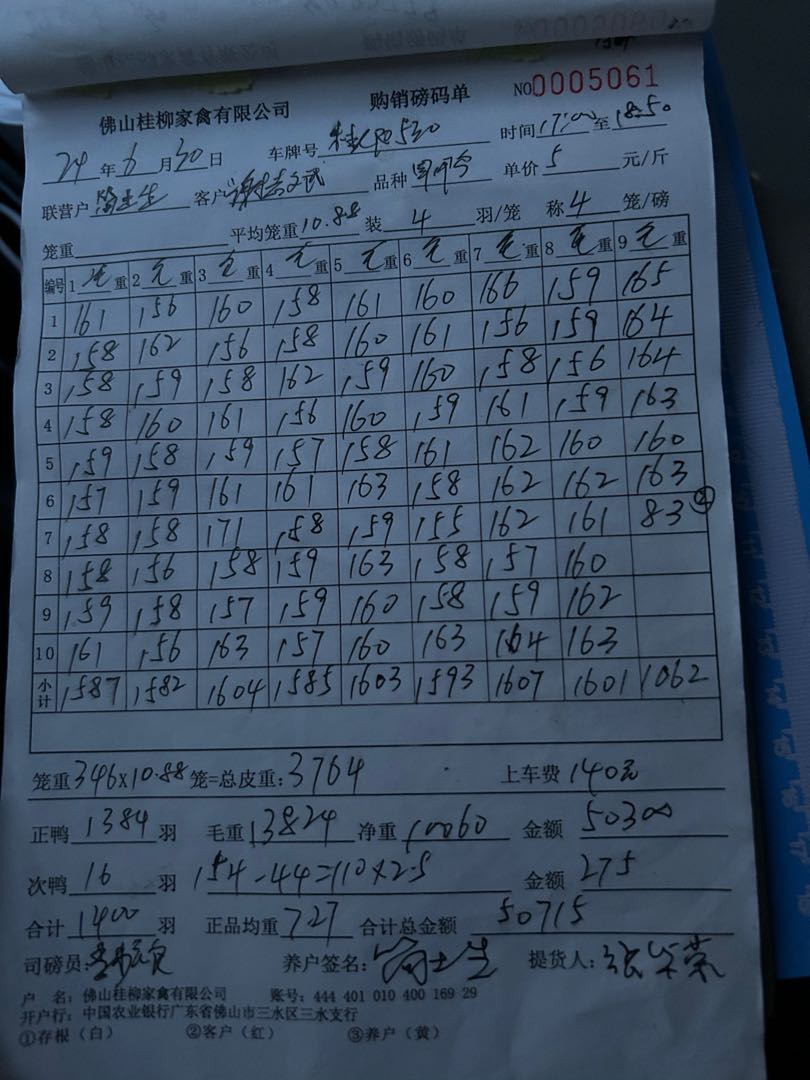 佛山桂柳家禽有限公司 购销磅码单 NO0005061
24年6月30日 车牌号 时间17:00至18:50
联营户 客户 品种 单价5元/斤
笼重 平均笼重10.88装4羽/笼 称4笼/磅
编号 1毛重 2毛重 3毛重 4毛重 5毛重 6毛重 7毛重 8毛重 9毛重
1 161 156 160 158 161 160 166 159 165
2 158 162 156 158 160 161 156 159 164
3 158 159 158 162 159 160 158 156 164
4 158 160 161 156 160 159 161 159 163
5 159 158 159 157 158 161 162 160 160
6 157 159 161 161 163 158 162 162 163
7 158 158 171 158 159 155 162 161 83②
8 158 156 158 159 163 158 157 160
9 159 158 157 159 160 158 159 162
10 161 156 163 157 160 163 164 163
小计 1587 1582 1604 1585 1603 1593 1607 1601 1062
笼重346×10.88笼=总皮重:3764 上车费140元
正鸭1384羽 毛重13824 净重10060 金额50300
次鸭16羽 154-44=110×2.5 金额275
合计1400羽 正品均重727 合计总金额50715
司磅员: 养户签名: 提货人:张华荣
户 名:佛山桂柳家禽有限公司 账号:444 401 010 400 169 29
开户行:中国农业银行广东省佛山市三水区三水支行
①存根(白) ②客户(红) ③养户(黄)